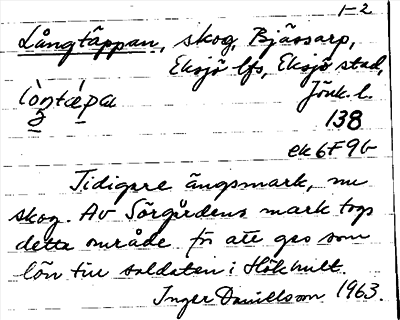 1-2
Långtäppan, skog, Bjässarp,
Eksjö lfs, Eksjö stad,
Jönk. l.
138
ek 6F 9b
Tidigare ängsmark, nu
skog. Av Sörgårdens mark togs
detta område för att ges som
lön till soldaten i Hökhult.
Inger Danielsson 1963.